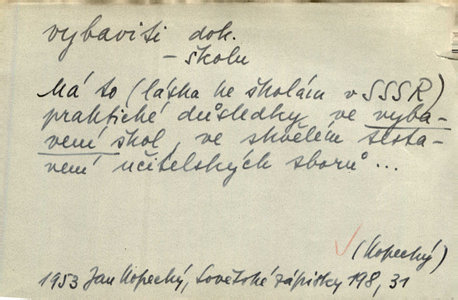 vybaviti dok.
– školu
Má to (láska ke školám v SSSR)
praktické důsledky ve vyba-
vení škol, ve skvělém sesta-
vení učitelských sborů ...
(Kopecký)
1953 Jan Kopecký, Sovětské zápisky 198, 31